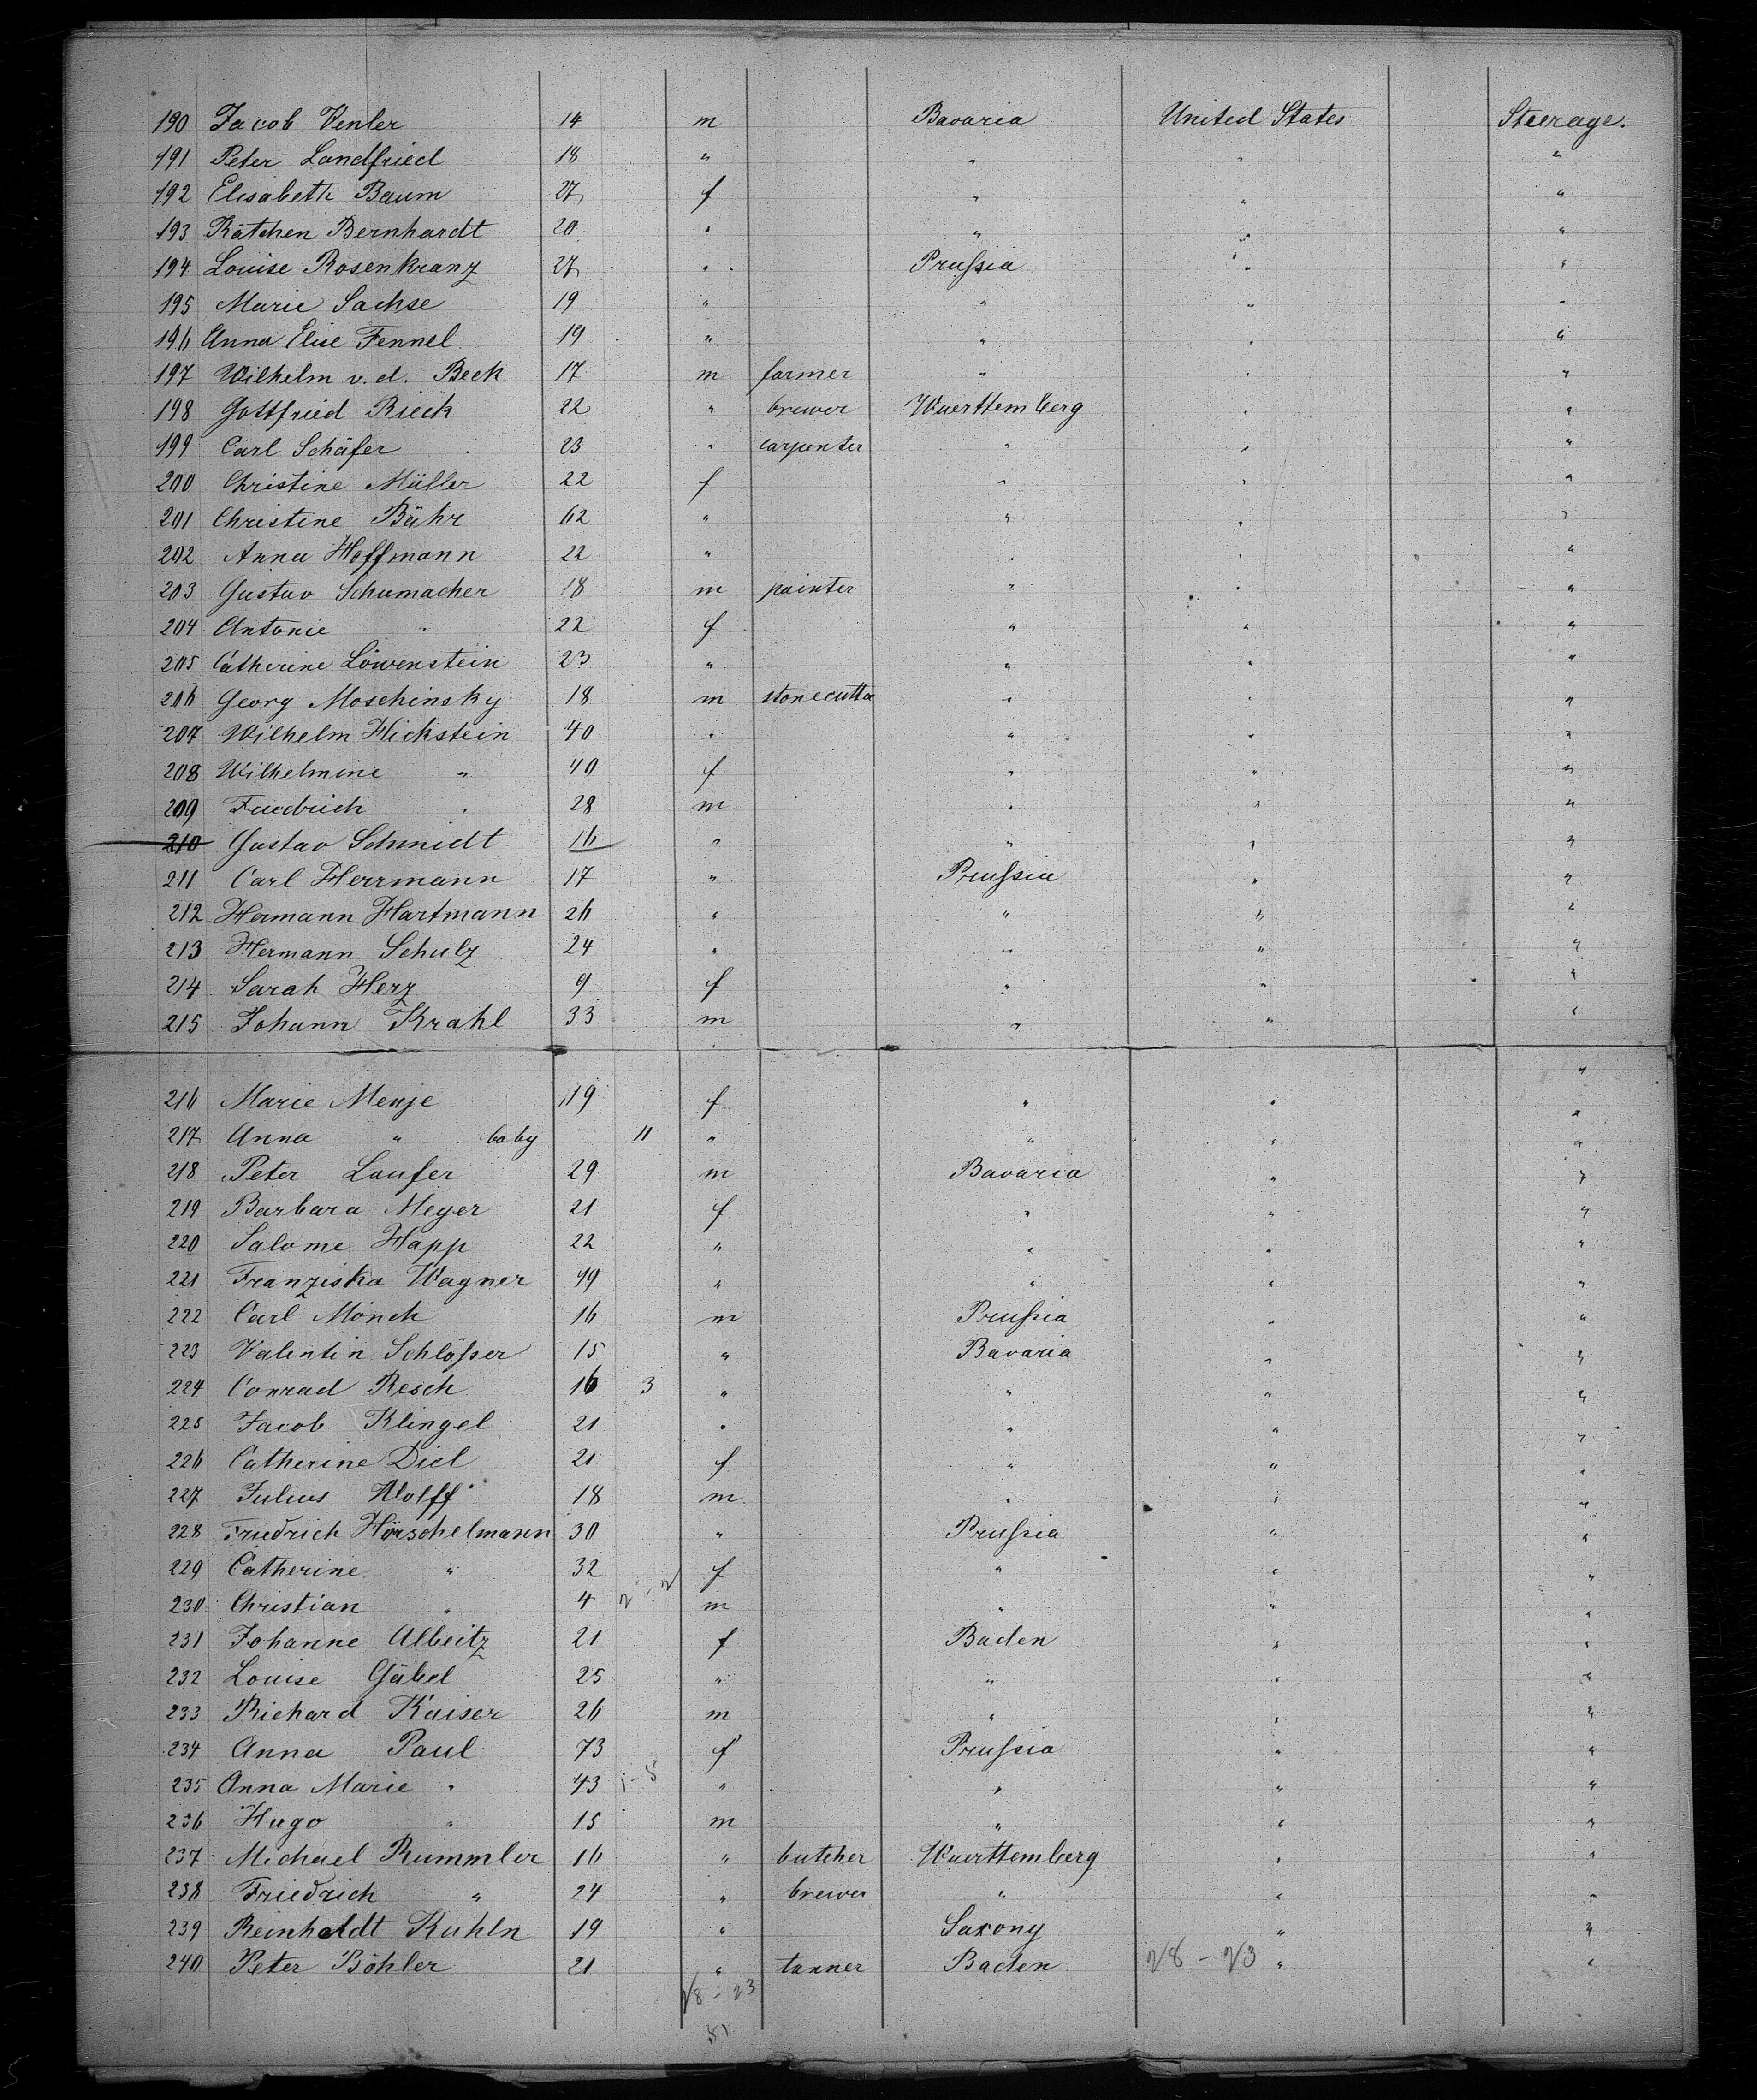 190 Jacob Venler 14 m Bavaria United States Steerage.
191 Peter Landfried 18 " " " "
192 Elisabeth Baum 27 f " " "
193 Kätchen Bernhardt 20 " " " "
194 Louise Rosenkranz 27 " Prussia " "
195 Marie Sachse 19 " " " "
196 Anna Elise Fennel 19 " " " "
197 Wilhelm v. d. Beck 17 m farmer " " "
198 Gottfried Rieck 22 " brewer Wuerttemberg " "
199 Carl Schäfer 23 " carpenter " " "
200 Christine Müller 22 f " " "
201 Christine Bähr 62 " " " "
202 Anna Hoffmann 22 " " " "
203 Gustav Schumacher 18 m painter " " "
204 Antonie " 22 f " " "
205 Catherine Löwenstein 23 " " " "
206 Georg Moschinsky 18 m stonecutter " " "
207 Wilhelm Hickstein 40 " " " "
208 Wilhelmine " 40 f " " "
209 Friedrich " 28 m " " "
210 Gustav Schmidt 16 " " " "
211 Carl Herrmann 17 " Prussia " "
212 Hermann Hartmann 26 " " " "
213 Hermann Schulz 24 " " " "
214 Sarah Herz 9 f " " "
215 Johann Krahl 33 m " " "
216 Marie Menje 19 f " " "
217 Anna " baby 11 " " " "
218 Peter Laufer 29 m Bavaria " "
219 Barbara Meyer 21 f " " "
220 Salome Happ 22 " " " "
221 Franziska Wagner 49 " " " "
222 Carl Mönch 16 m Prussia " "
223 Valentin Schlösser 15 " Bavaria " "
224 Conrad Resch 16 3 " " " "
225 Jacob Klingel 21 " " " "
226 Catherine Diel 21 f " " "
227 Julius Wolff 18 m " " "
228 Friedrich Hörschelmann 30 " Prussia " "
229 Catherine " 32 f " " "
230 Christian " 4 m " " "
231 Johanne Albeitz 21 f Baden " "
232 Louise Gäbel 25 " " " "
233 Richard Kaiser 26 m " " "
234 Anna Paul 73 f Prussia " "
235 Anna Marie " 43 1-5 " " " "
236 Hugo " 15 m " " "
237 Michael Rummler 16 " butcher Wuerttemberg " "
238 Friedrich " 24 " brewer " " "
239 Reinholdt Kuhln 19 " Saxony " "
240 Peter Böhler 21 " tanner Baden 28-23 " "
28-23
51